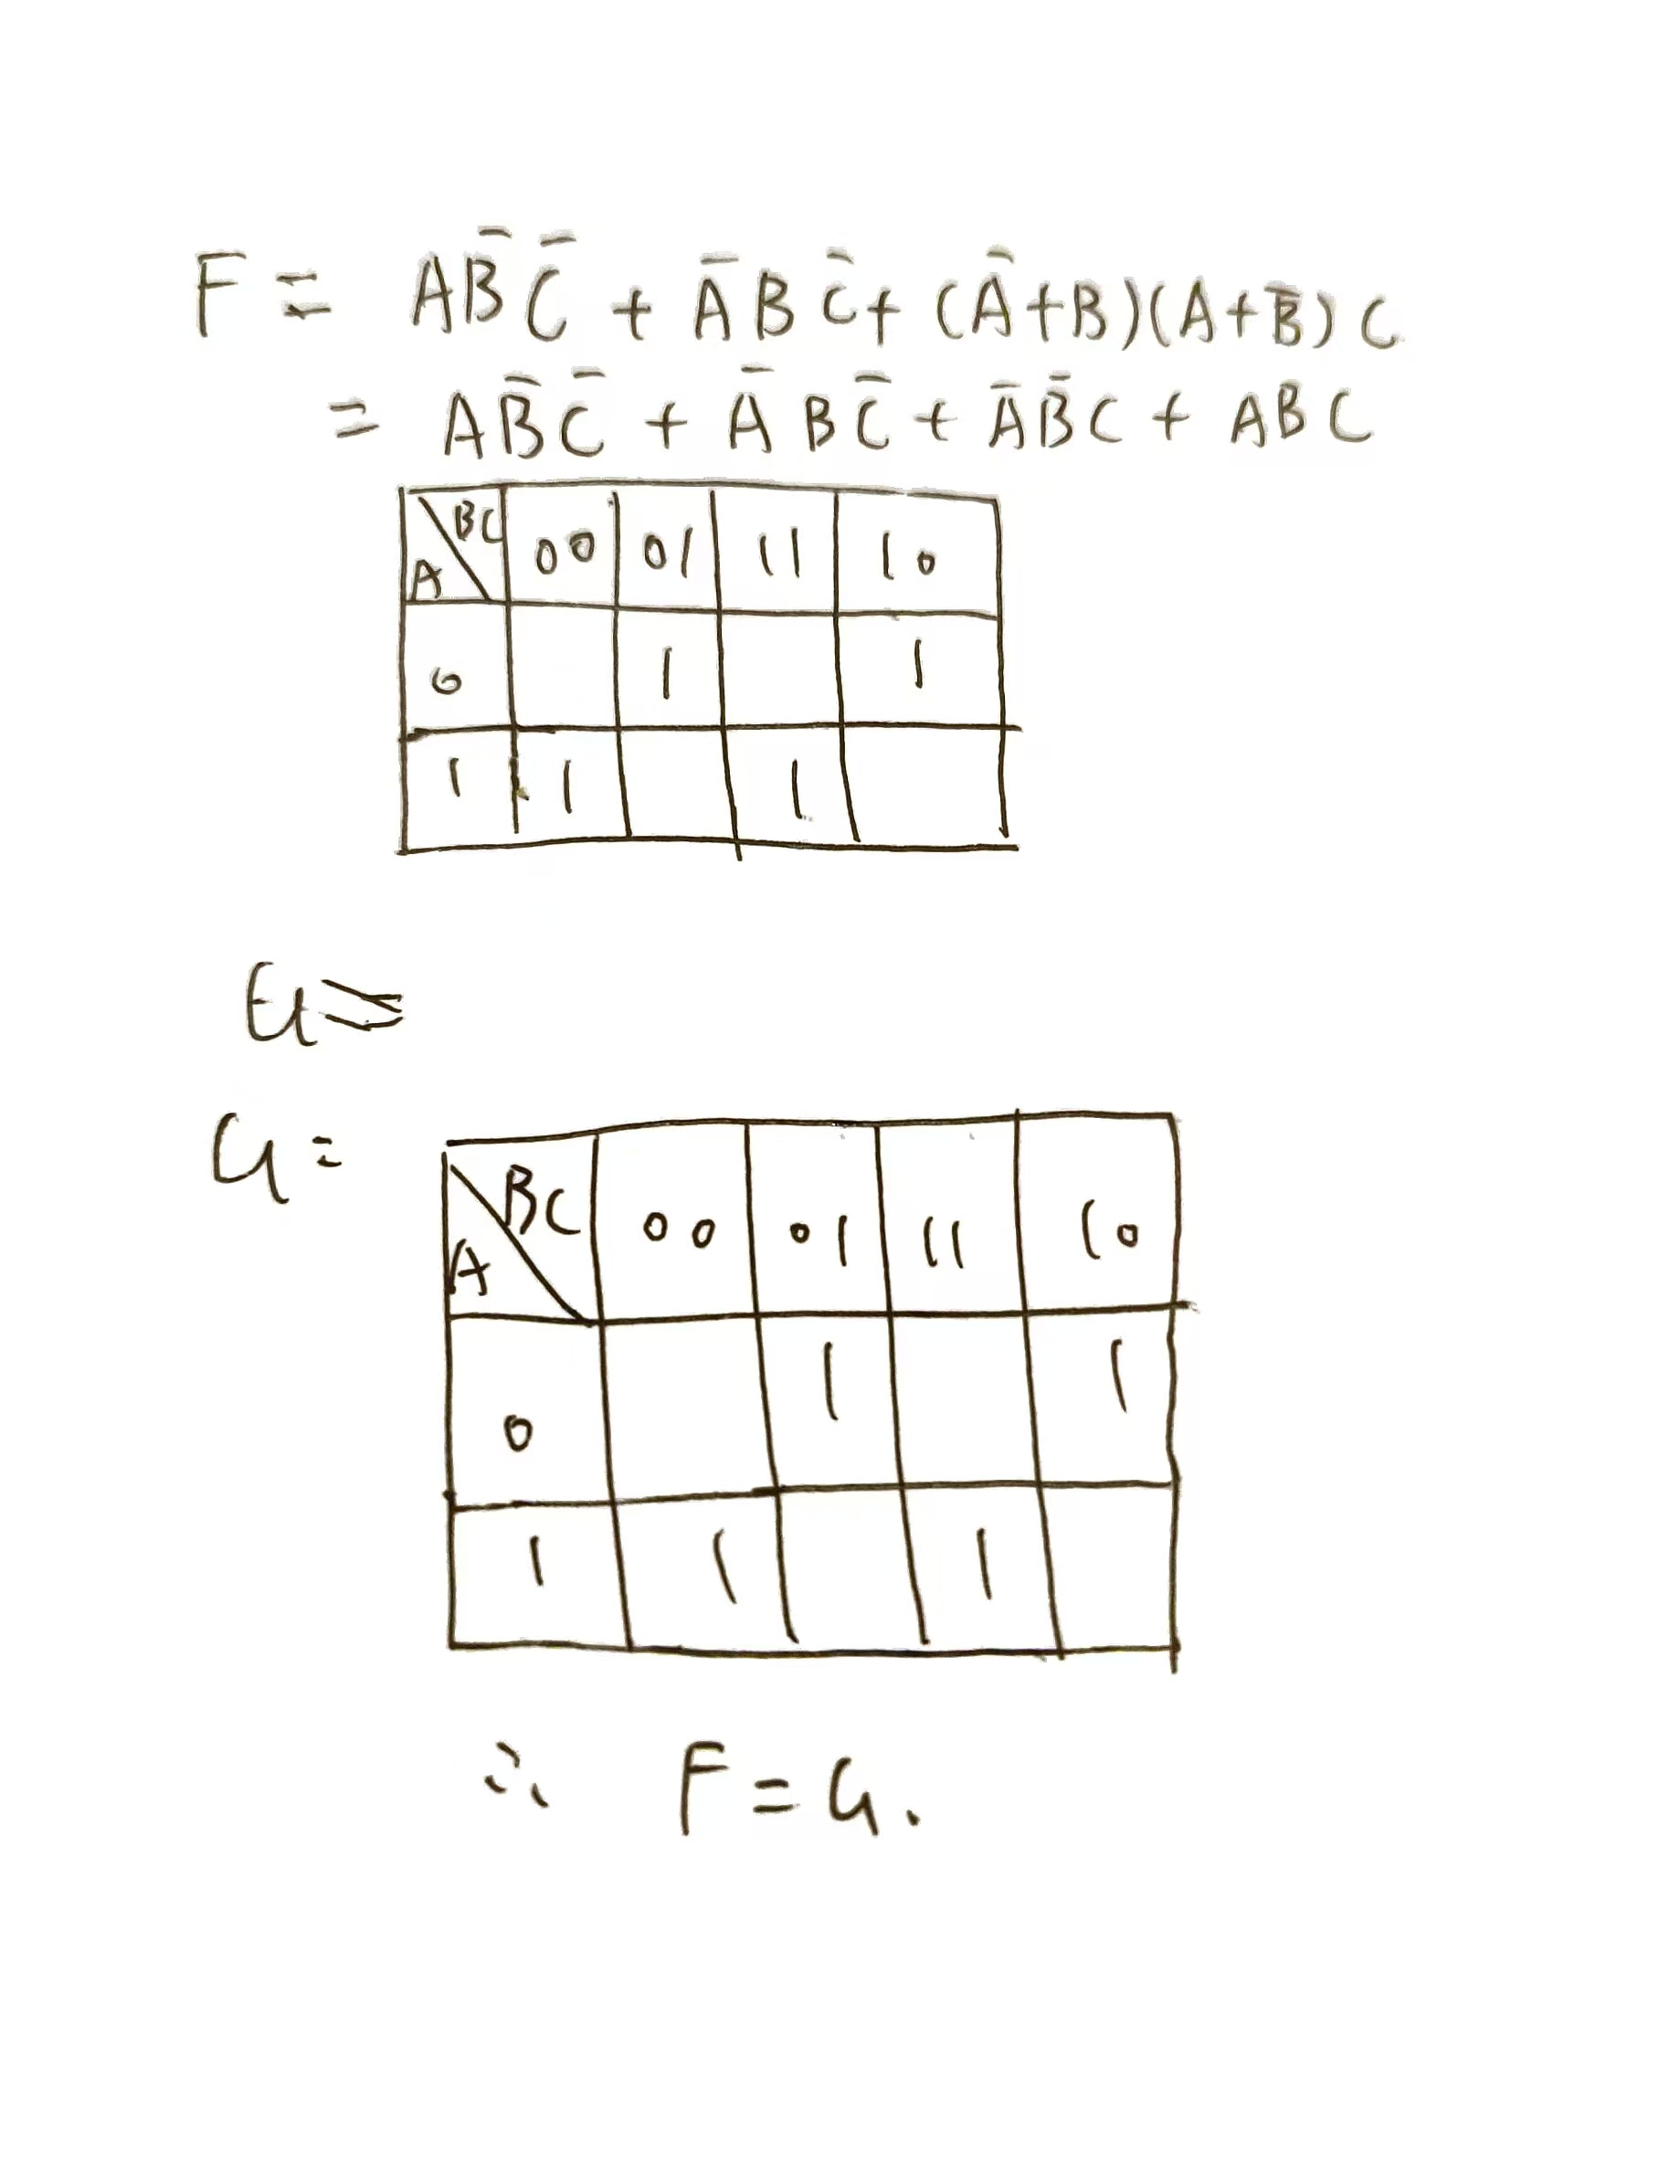 F = AB̄C̄ + ĀBC̄ + (Ā+B)(A+B̄)C
= AB̄C̄ + ĀBC̄ + ĀB̄C + ABC
A BC 00 01 11 10
0 1 1
1 1 1
G=
A BC 00 01 11 10
0 1 1
1 1 1
∴ F=G.